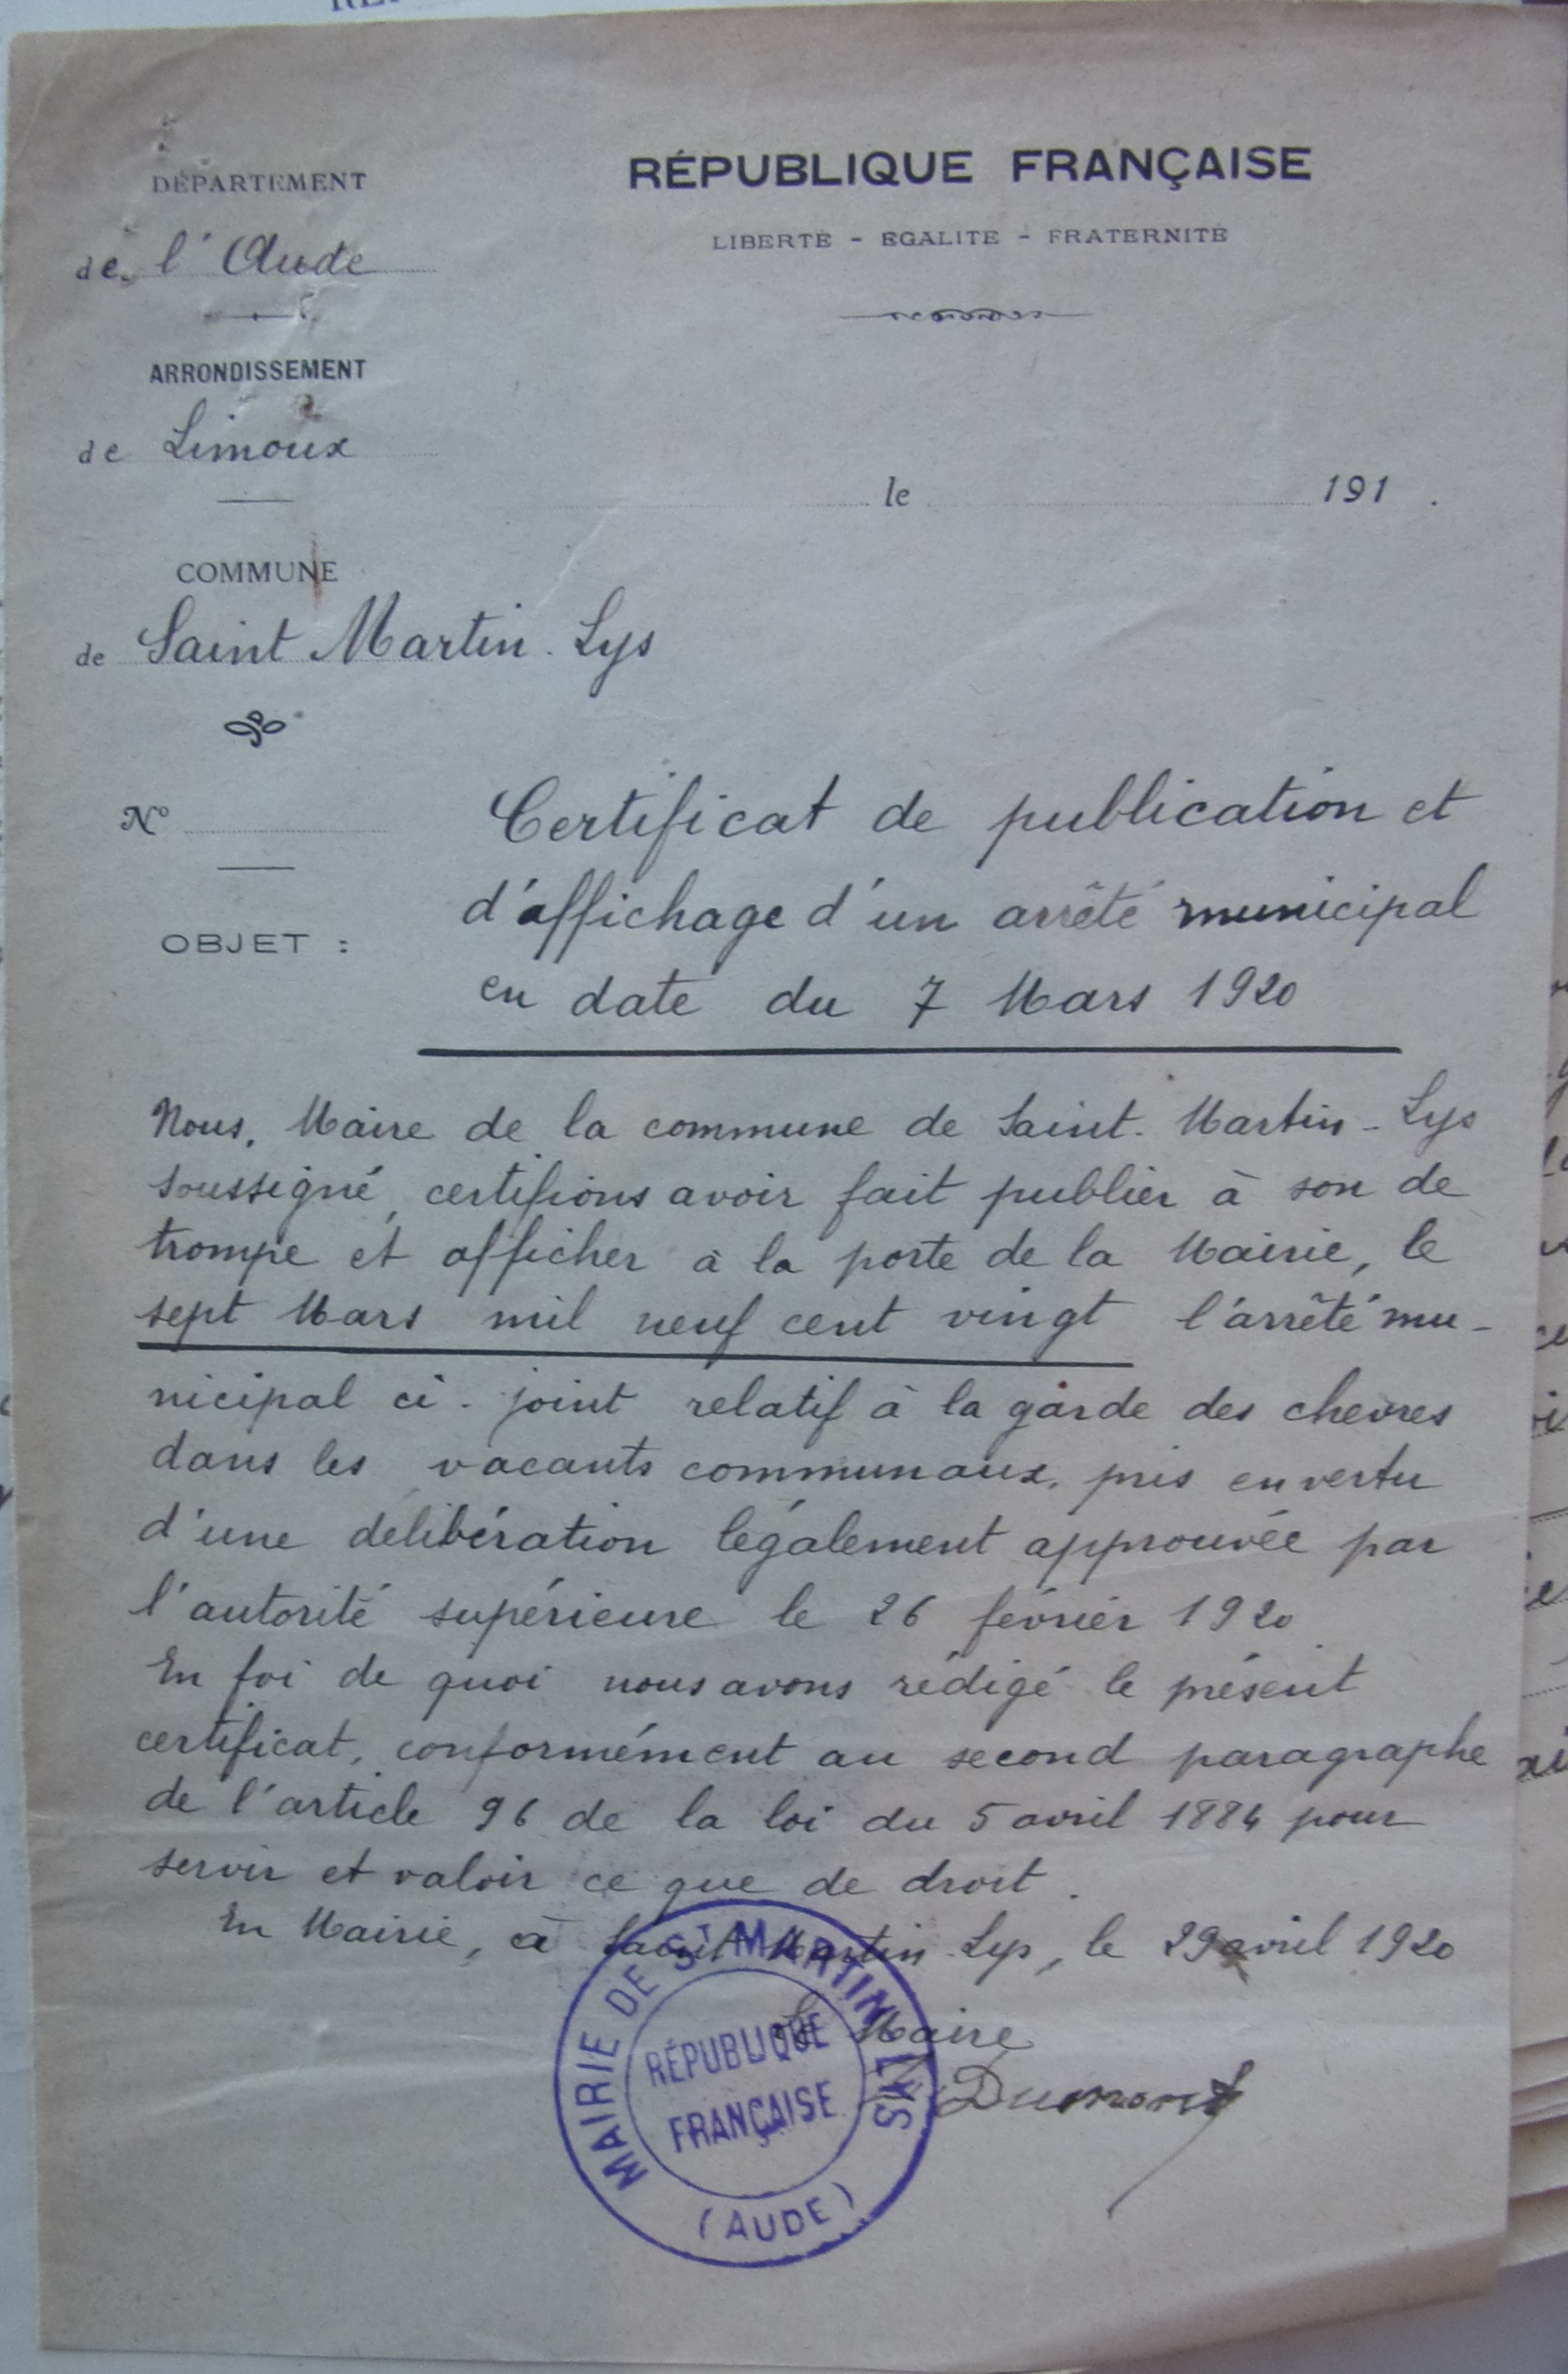 DÉPARTEMENT
de l'Aude
RÉPUBLIQUE FRANÇAISE
LIBERTÉ - EGALITÉ - FRATERNITÉ
ARRONDISSEMENT
de Limoux
le 191 .
COMMUNE
de Saint Martin-Lys
N°
OBJET :
Certificat de publication et
d'affichage d'un arrêté municipal
en date du 7 Mars 1920
Nous, Maire de la commune de Saint-Martin-Lys
soussigné, certifions avoir fait publier à son de
trompe et afficher à la porte de la Mairie, le
sept Mars mil neuf cent vingt l'arrêté mu-
nicipal ci-joint relatif à la garde des chevres
dans les vacants communaux, pris en vertu
d'une délibération légalement approuvée par
l'autorité supérieure le 26 février 1920
En foi de quoi nous avons rédigé le présent
certificat, conformément au second paragraphe
de l'article 96 de la loi du 5 avril 1884 pour
servir et valoir ce que de droit.
En Mairie, à Saint Martin-Lys, le 29 avril 1920
Le Maire
Dumont
MAIRIE DE St MARTIN LYS
RÉPUBLIQUE
FRANÇAISE
(AUDE)